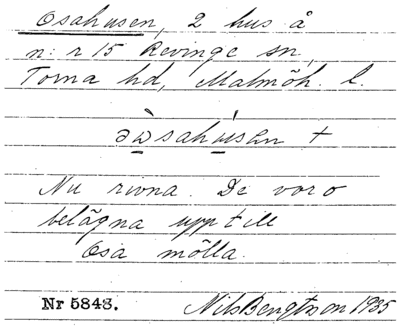 Osahusen, 2 hus å
n:r 15 Revinge sn,
Torna hd, Malmöh. l.
əὼsahúsən +
Nu rivna. De voro
belägna upp till
Osa mölla.
Nr 5848. Nils Bengtsson 1935